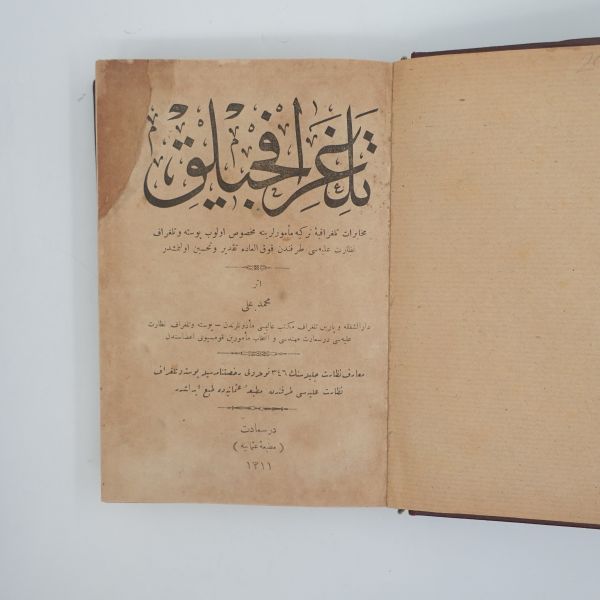 تلغرافجیلق
مخابرات تلغرافیهٔ ترکیه مأمورلرینه مخصوص اولوب پوسته و تلغراف
نظارت علیه‌سی طرفندن فوق العاده تقدیر و تحسین اولنمشدر
اثر
محمد علی
دارالشفقه و پاریس تلغراف مکتب عالیسی مأذونلرندن – پوسته و تلغراف نظارت
علیه‌سی درسعادت مهندسی و انتخاب مأمورین قومسیونی اعضاسندن
معارف نظارت جلیله‌سنك ٣٤٦ نومرولی رخصتنامه‌سیله پوسته و تلغراف
نظارت علیه‌سی طرفندن مطبعهٔ عثمانیه‌ده طبع ایدلمشدر
درسعادت
( مطبعهٔ عثمانیه )
١٣١١